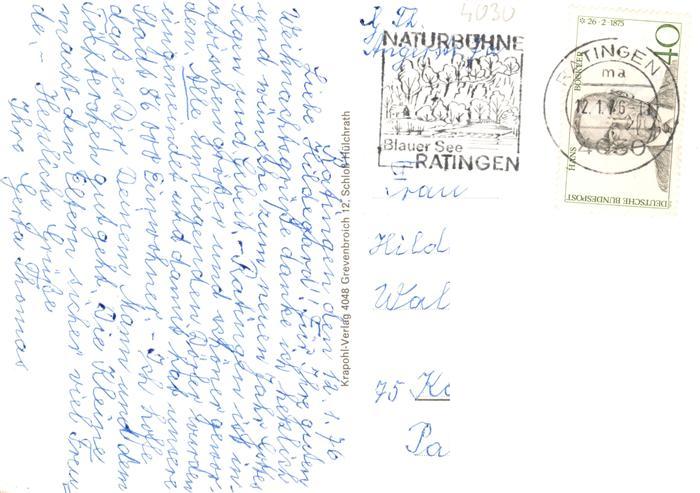 Ratingen den 12.1.76
Liebe Hildegard! Für Ihre guten
Weihnachtsgrüße danke ich herzlich
und wünsche zum neuen Jahr Gottes
Segen und Geleit. - Ratingen ist in-
zwischen größer und schöner gewor-
den. Alle umliegenden Dörfer wurden
eingemeindet und damit hat unsere
Stadt 86 000 Einwohner. - Ich hoffe
daß es Dir, Deinem Mann und dem
Töchterchen gut geht. Die Kleine
macht den Eltern sicher viel Freu-
de. - Herzliche Grüße
Ihre Gerta Thomas
Krapohl-Verlag 4048 Grevenbroich 12, Schloß Hülchrath
4030
G. Th.
NATURBÜHNE
Blauer See
RATINGEN
RATINGEN
ma
12.1.76
4030
HANS BÖCKLER
* 26·2·1875
40
DEUTSCHE BUNDESPOST
Frau
Hild
Wal
75 Ka
Pa